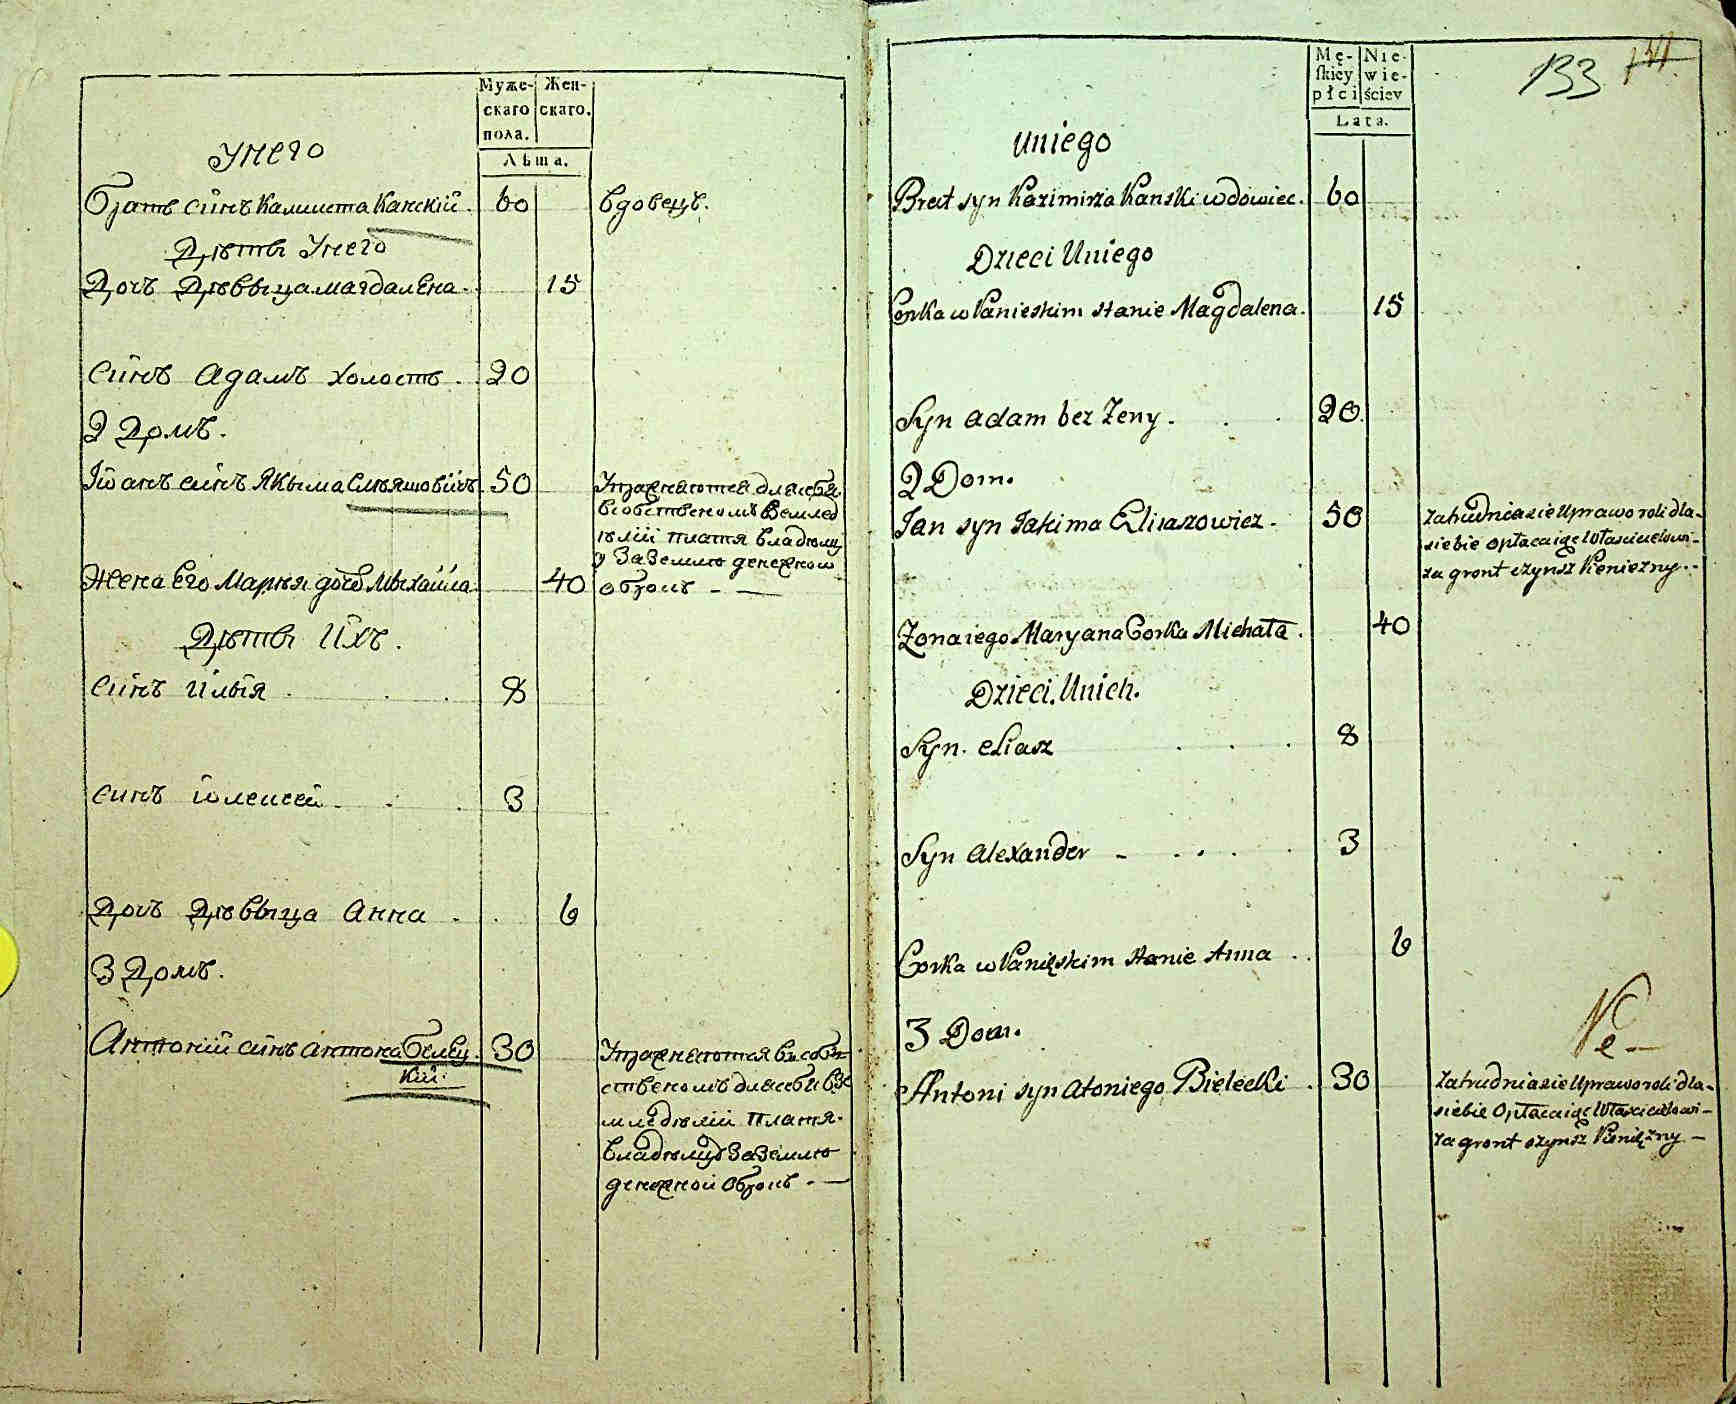 Муже-
скаго
пола.
Жен-
скаго.
Лѣта.
Унего
Братъ синъ Калиста Канскій. 60 вдовецъ.
Дѣты Унего
Дочъ Дѣвыца магдалена. 15
Синъ Адамъ холостъ. 20
2 Домъ.
Іванъ синъ Якыма Еляшовичъ 50
Упражняются для себя
всобственомъ Землед
ѣлій платя владѣлц
у Заземлю денежной
оброкъ
Жена Его Марыя дочъ Мыхайла. 40
Дѣты Ихъ.
Синъ Илыя 8
синъ йолексей 3
Дочъ Дѣвыца Анна 6
3 Домъ.
Антоній синъ антона Белец-
кій. 30
Упражняются всобс-
ственомъ для себя взе
мледѣлій платя
владѣлцу Заземлю
денежной оброкъ.
Mę-
skiey
płci
Nie-
wie-
ściey
Lata.
133
uniego
Brat syn Kazimirza Kanski wdowiec. 60
Dzieci Uniego
Corka w Panieskim stanie Magdalena. 15
Syn adam bez Zeny. 20.
2 Dom.
Jan syn Jakima Eliaszowicz. 50
zatrudnia sie Uprawo roli dla
siebie opłacaiąc Włascicielowi
za gront czynsz Pieniezny.
Zona iego Maryana Corka Michała. 40
Dzieci. Unich.
Syn. eliasz 8
Syn Alexander 3
Corka w Panięskim stanie Anna 6
3 Dom.
Ne
Antoni syn Atoniego Bielecki. 30
zatrudnia sie Uprawo roli dla
siebie Opłacaiąc Włascicielowi
za gront czynsz Pienięzny